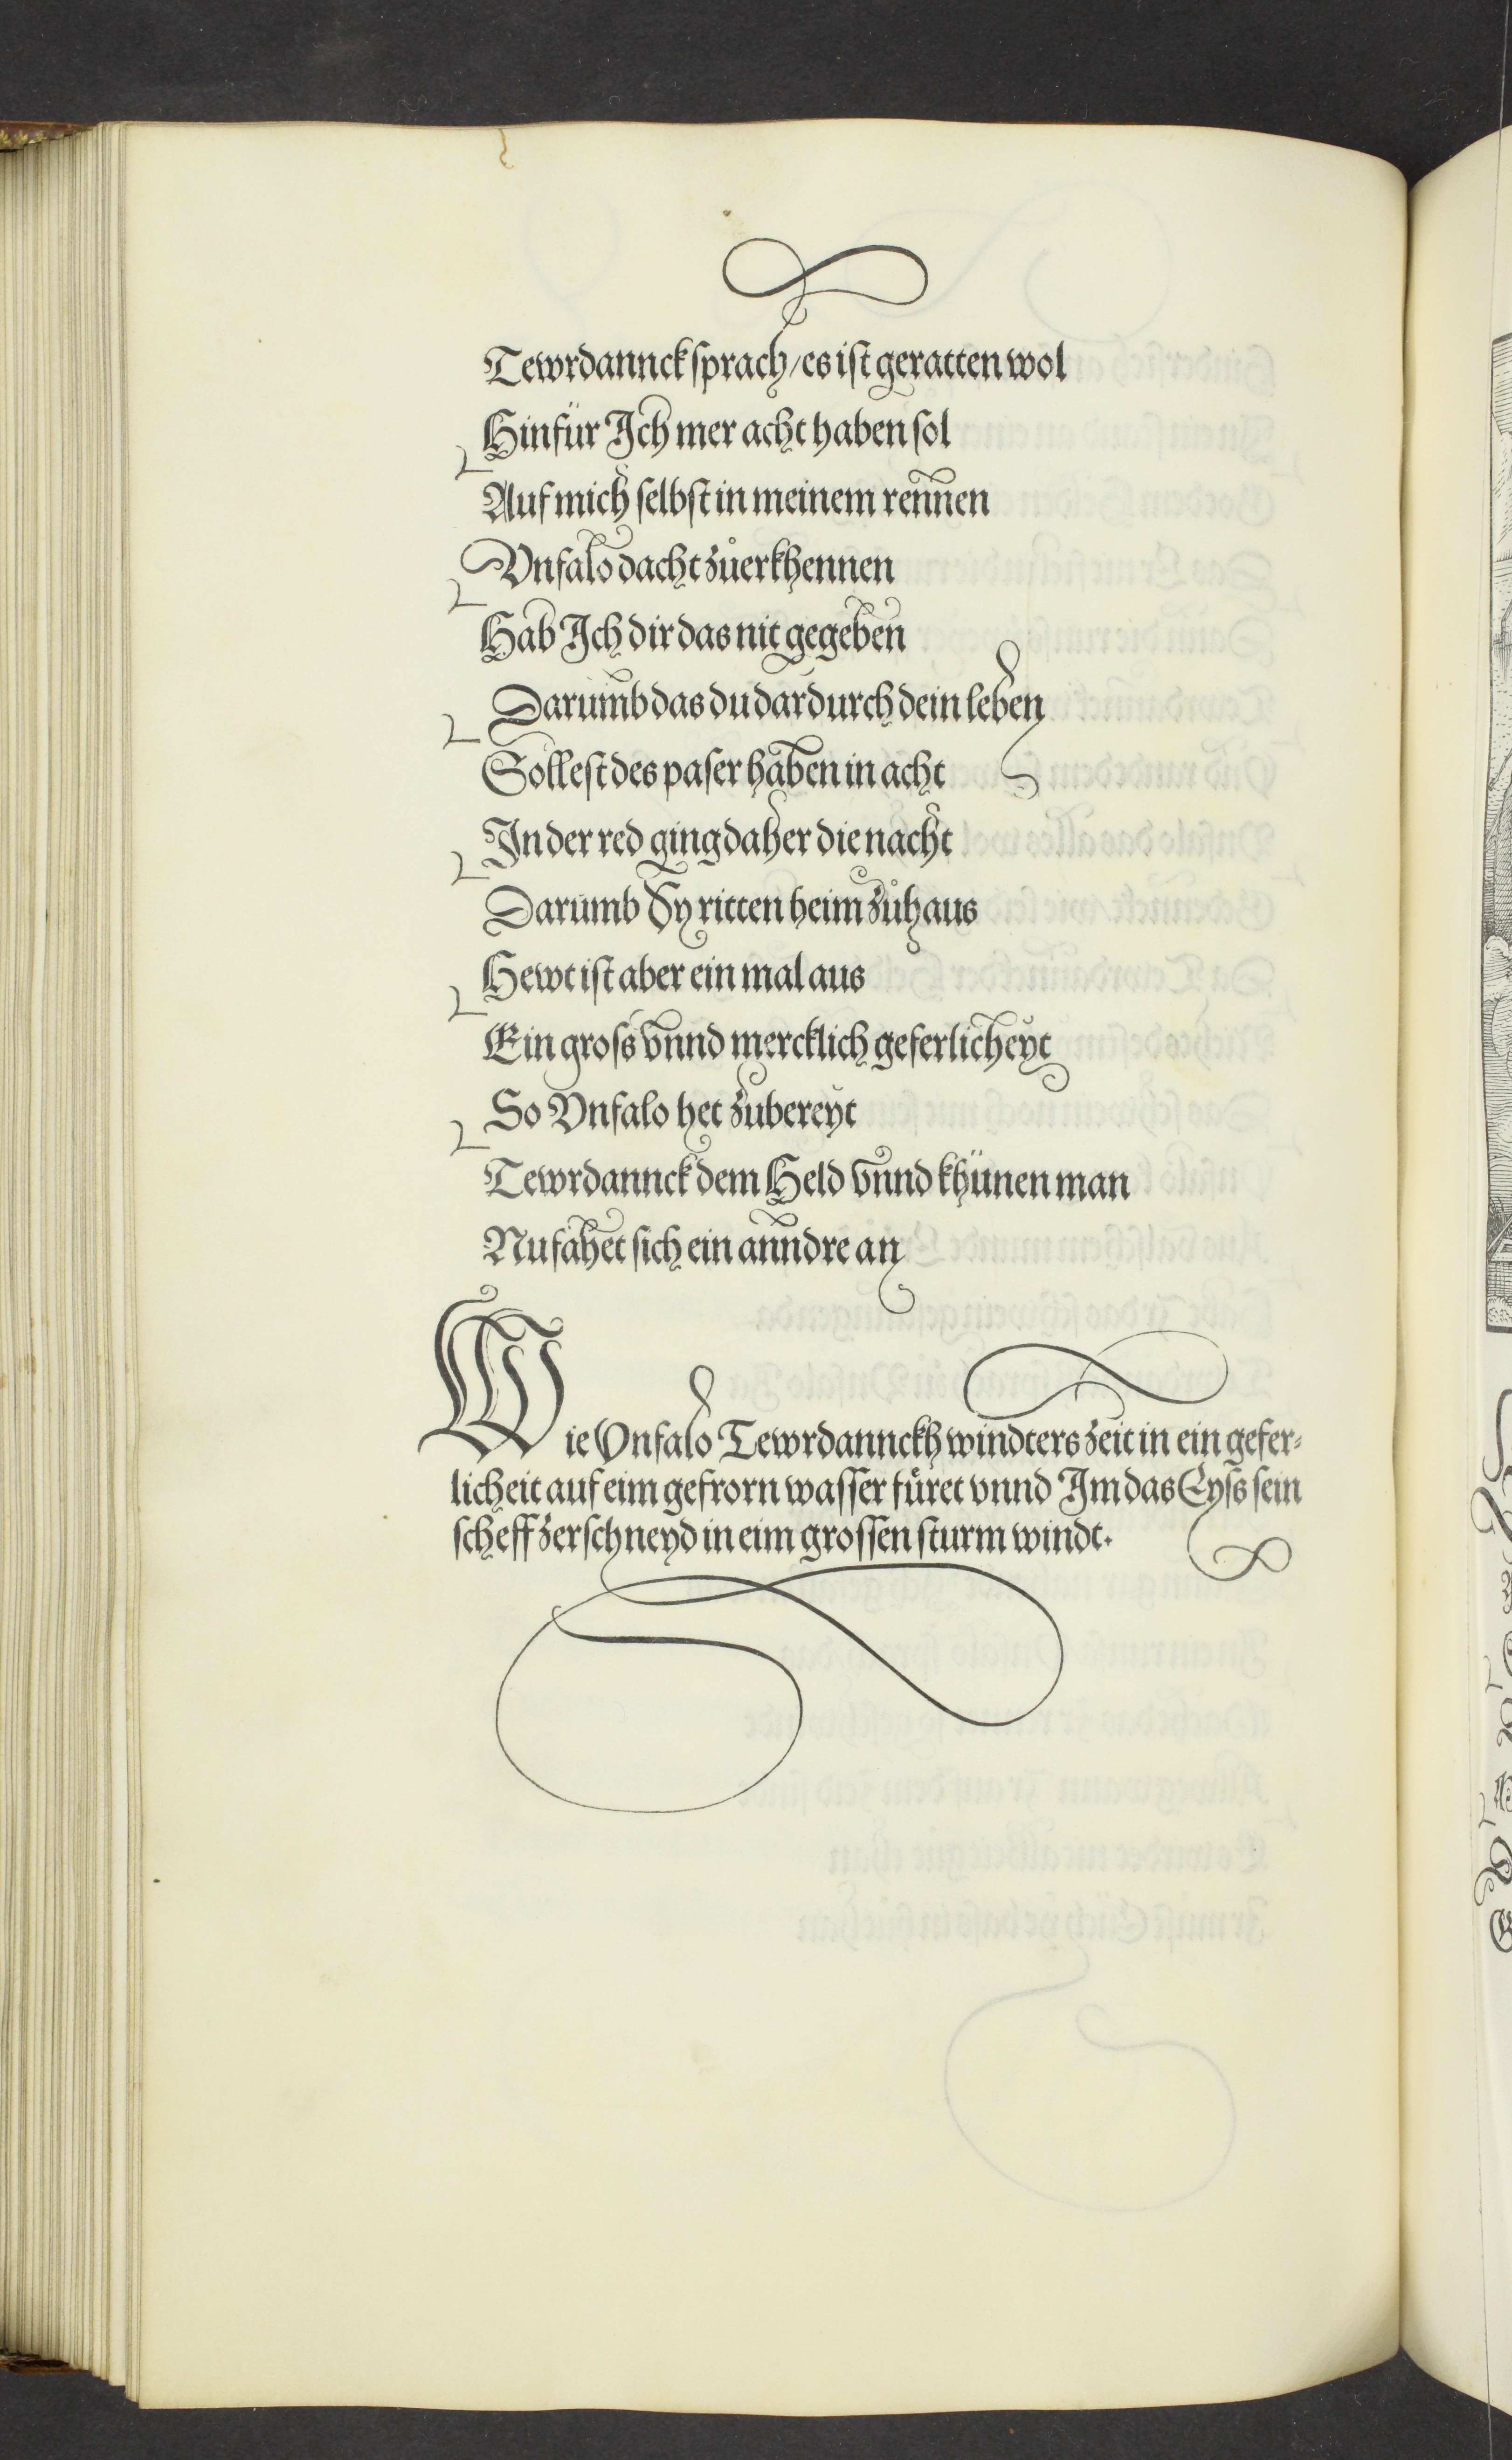 Tewrdannck sprach / es ist geratten wol
Hinfür Ich mer acht haben sol
Auf mich selbst in meinem rennen
Vnfalo dacht zůerkhennen
Hab Ich dir das nit gegeben
Darumb das du dardurch dein leben
Sollest des paser haben in acht
In der red ging daher die nacht
Darumb Sy ritten heim zůhaus
Hewt ist aber ein mal aus
Ein gross vnnd mercklich geferlicheyt
So Vnfalo het zubereyt
Tewrdannck dem Held vnnd khünen man
Nu fahet sich ein anndre an
Wie Vnfalo Tewrdannckh windters zeit in ein gefer⸗
licheit auf eim gefrorn wasser füret vnnd Im das Eyss sein
scheff zerschneyd in eim grossen sturm windt.